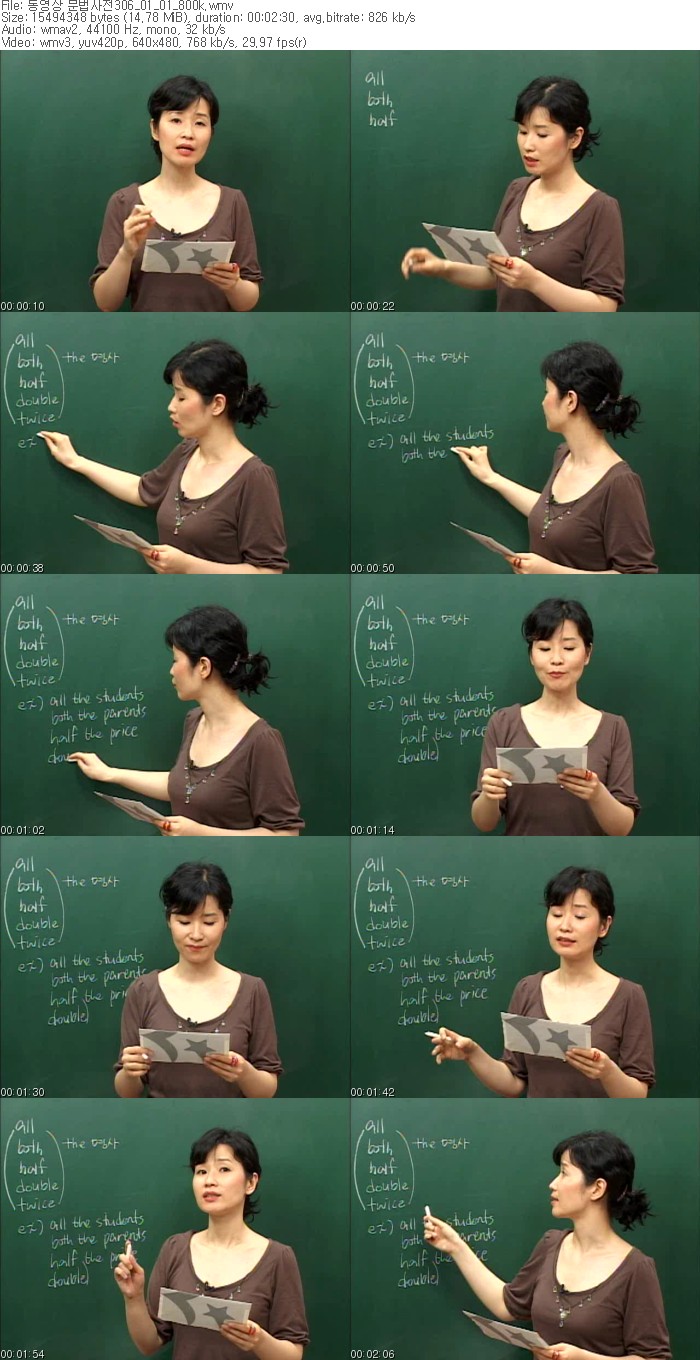 File: 동영상 문법사전306_01_01_800k.wmv
Size: 15494348 bytes (14.78 MiB), duration: 00:02:30, avg.bitrate: 826 kb/s
Audio: wmav2, 44100 Hz, mono, 32 kb/s
Video: wmv3, yuv420p, 640x480, 768 kb/s, 29.97 fps(r)
00:00:10
all
both
half
00:00:22
all
both the 명사
half
double
twice
ex
00:00:38
all
both the 명사
half
double
twice
ex) all the students
both the
00:00:50
all
both the 명사
half
double
twice
ex) all the students
both the parents
half the price
dou
00:01:02
all
both the 명사
half
double
twice
ex) all the students
both the parents
half the price
double
00:01:14
all
both the 명사
half
double
twice
ex) all the students
both the parents
half the pri
double
00:01:30
all
both the 명사
half
double
twice
ex) all the students
both the parents
half the price
double
00:01:42
all
both the 명사
half
double
twice
ex) all the students
both the parents
half the pr
double
00:01:54
all
both the 명사
half
double
twice
ex) all the students
both the parents
half the price
double
00:02:06